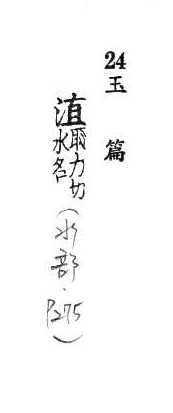 24玉篇
淔耻力切水名(水部·P275)